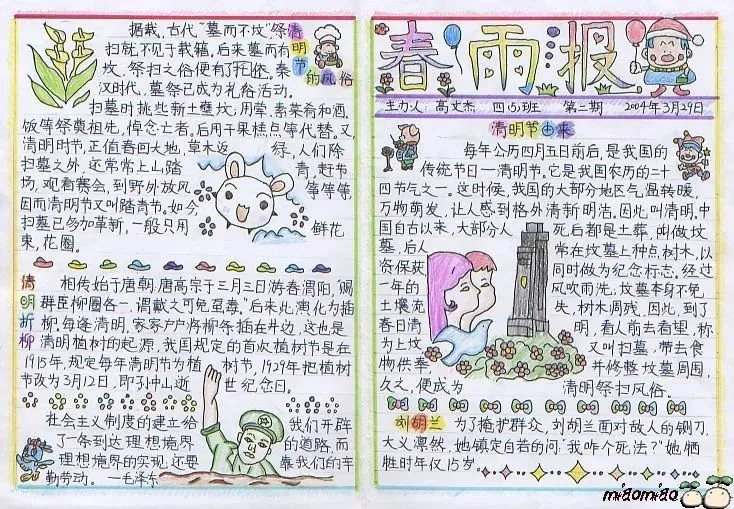 据载,古代"墓而不坟",祭
扫就不见于载籍,后来墓而有
坟,祭扫之俗便有了托依,秦
汉时代,墓祭已成为礼俗活动。
清明节的风俗
扫墓时挑些新土壅坟;用荤、素菜肴和酒、
饭等祭奠祖先,悼念亡者。后用干果糕点等代替。又,
清明时节,正值春回大地,草木返绿,人们除
扫墓之外,还常常上山踏青,赶节
场,观看赛会,到野外放风筝等等,
因而清明节又叫踏青节。如今,
扫墓已多加革新,一般只用鲜花
束,花圈。
清明折柳
相传始于唐朝,唐高宗于三月三日游春渭阳,"赐
群臣柳圈各一,谓戴之可免虿毒。"后来此演化为插
柳,每逢清明,家家户户将柳条插在斗边,这也是
清明植树的起源,我国规定的首次植树节是在
1915年,规定每年清明节为植树节,1929年把植树
节改为3月12日,即孙中山逝世纪念日。
社会主义制度的建立给我们开辟
了一条到达理想境界的道路,而
理想境界的实现,还要靠我们的辛
勤劳动。 —毛泽东
春雨报
主办人:高文杰 四(5)班 第二期 2004年3月29日
清明节由来
每年公历四月五日前后,是我国的
传统节日—清明节。它是我国农历的二十
四节气之一。这时候,我国的大部分地区气温转暖,
万物萌发,让人感到格外清新明洁。因此叫清明。中
国自古以来,大部分人死后都是土葬,叫做坟
墓,后人常在坟墓上种点树木,以
资保获同时做为纪念标志。经过
一年的风吹雨洗,坟墓本身不免
土壤流失,树木凋残,因此,到了
春日清明,看人前去看望,称
为上坟又叫扫墓,带去食
物供奉,并修整坟墓周围,
久之,便成为清明祭扫风俗。
刘胡兰 为了掩护群众,刘胡兰面对敌人的铡刀,
大义凛然,她镇定自若的问:"我咋个死法?"她牺
牲时年仅15岁
miaomiao